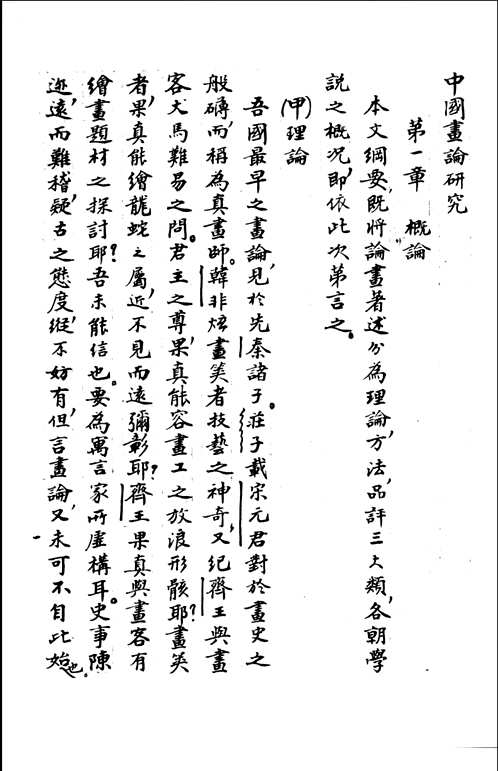 中國畫論研究
第一章　概論
本文綱要，既將論畫著述分為理論，方法，品評三大類，各朝學
說之概況，即依此次第言之。
(甲)理論
吾國最早之畫論，見於先秦諸子。莊子載宋元君對於畫史之
般礴，而稱為真畫師。韓非炫畫筴者技藝之神奇，又紀齊王與畫
客犬馬難易之問。君主之尊，果真能容畫工之放浪形骸耶？畫筴
者，果真能繪龍蛇之屬，近不見而遠彌彰耶？齊王果真與畫客有
繪畫題材之探討耶？吾未能信也。要為寓言家所虛構耳。史事陳
迹，遠而難稽，疑古之態度，縱不妨有，但言畫論，又未可不自此始也。